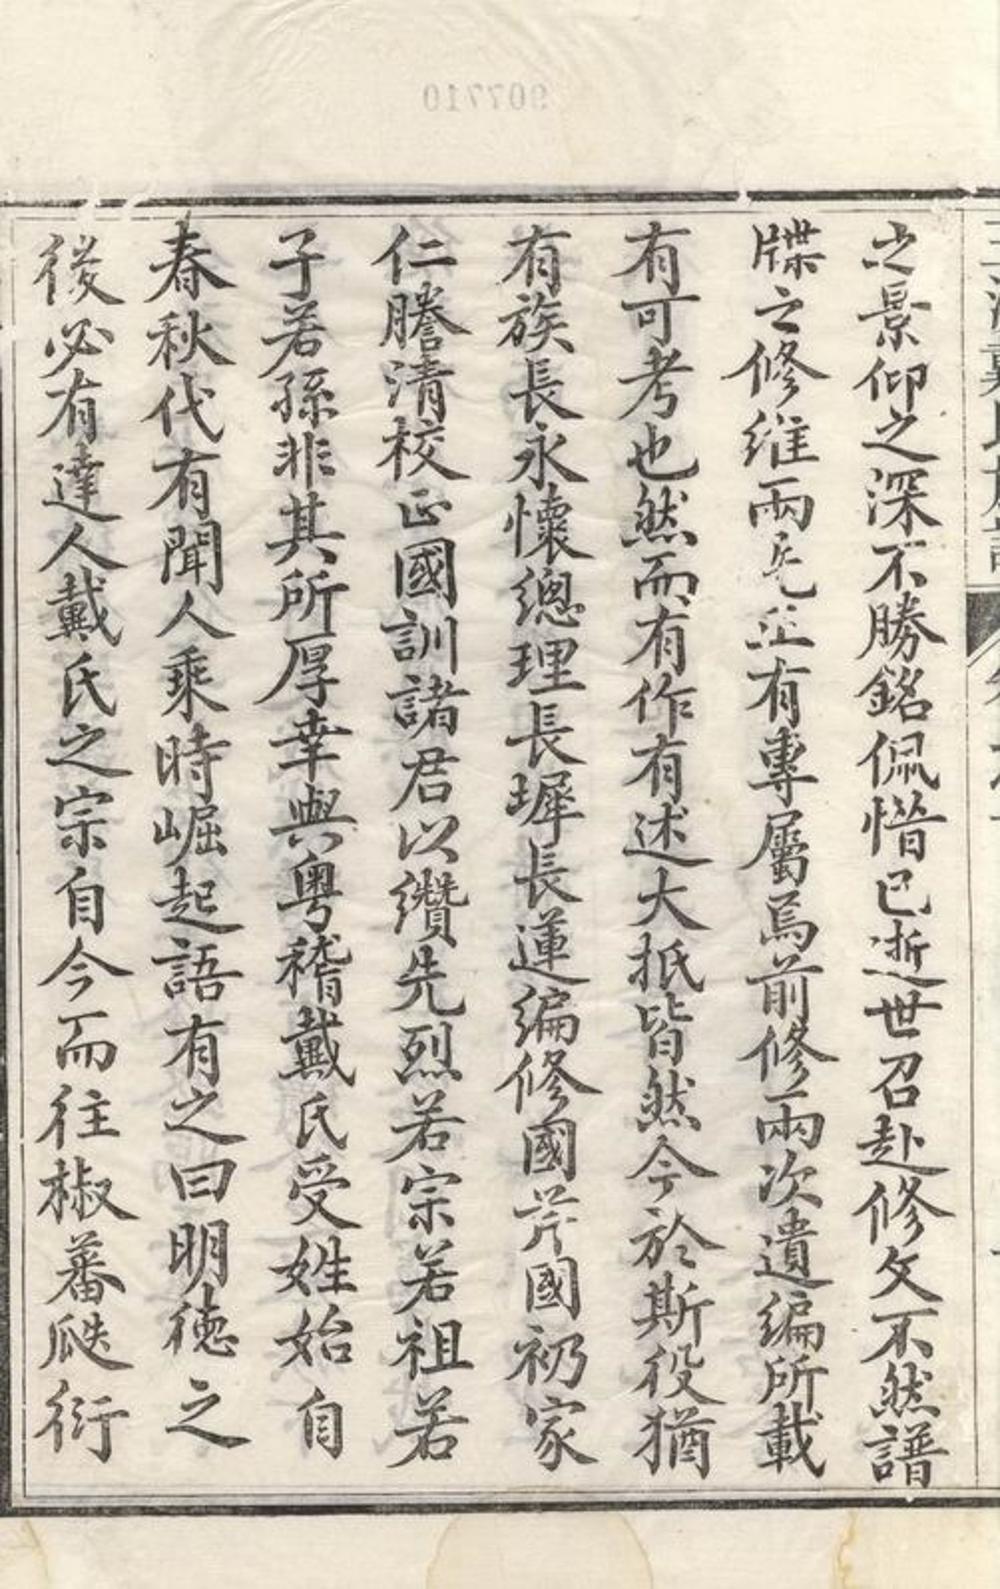 之景仰之深不勝銘佩惜已逝世召赴修文不然譜
牒之修維兩先並有專屬焉前修兩次遺編所載
有可考也然而有作有述大抵皆然今於斯役猶
有族長永懷總理長墀長運編修國芹國礽家
仁謄清校正國訓諸君以纘先烈若宗若祖若
子若孫非其所厚幸與粵稽戴氏受姓始自
春秋代有聞人乘時崛起語有之曰明德之
後必有達人戴氏之宗自今而往椒蕃瓞衍